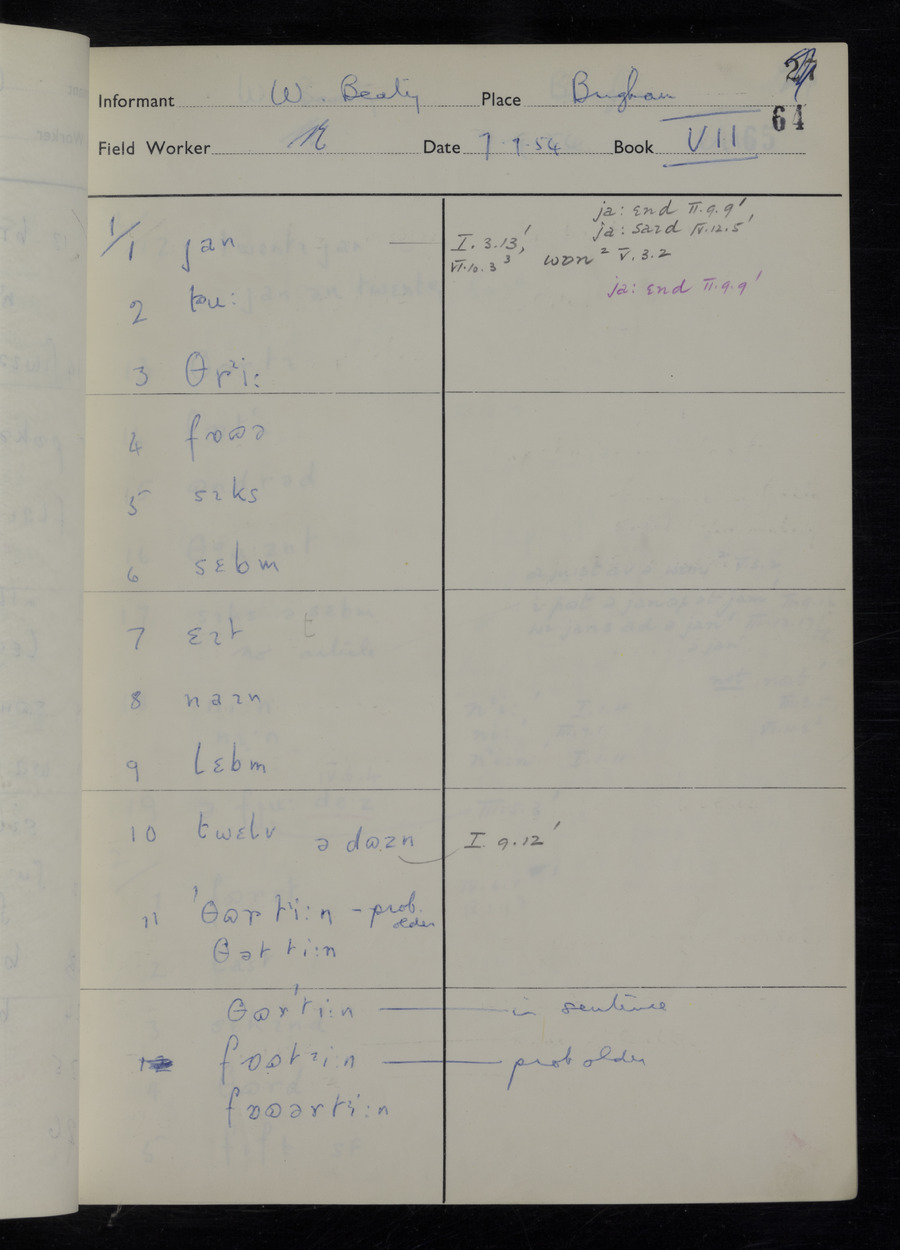 27
64
Informant W. Beaty Place Brigham
Field Worker Date 7.7.54 Book VII
1/1 jan — I. 3.13,' VI.10.3 ³
ja: ɛnd II.9.9'
ja: saɪd IV.12.5'
wɒn ² V.3.2
ja: ɛnd II.9.9'
2 tɵu:
3 θrɪi:
4 fɒʊə
5 sɪks
6 sɛbm
7 ɛɪt t
8 naɪn
9 lɛbm
10 twɛlv ə dʊzn I. 9.12'
11 'θʊrtɪi:n – prob. older
θərti:n
θʊr'ti:n — in sentence
fɒʊtɪi:n — prob older
fɒʊərtɪi:n